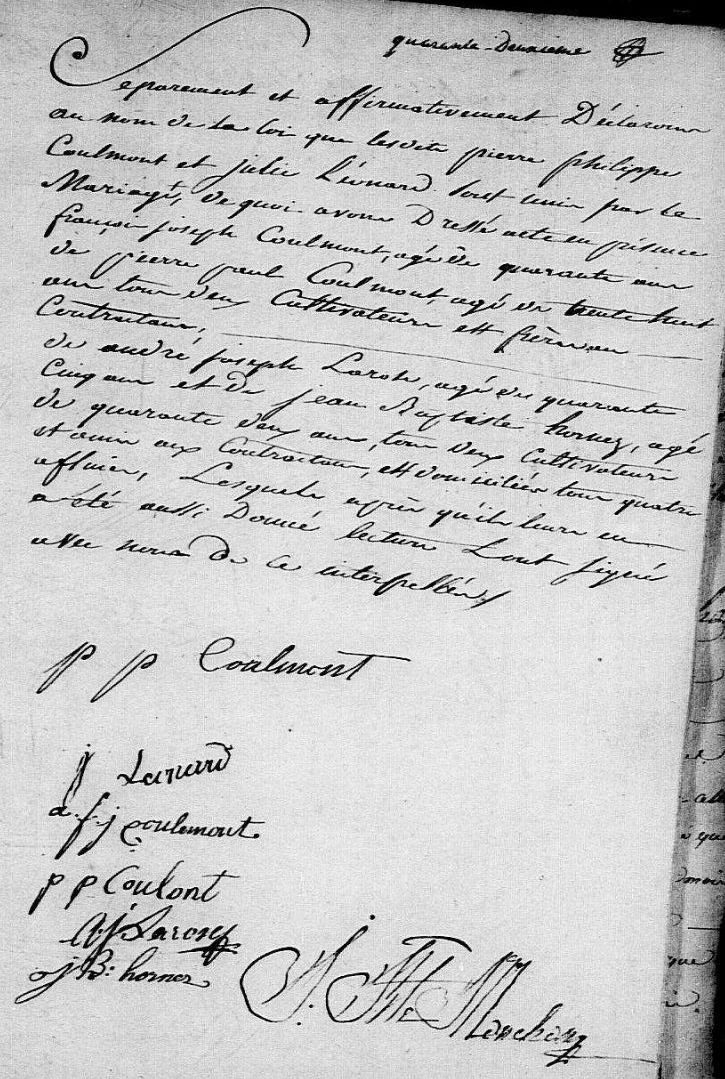 quarante-deuxième
Separement et affirmativement Déclarons
au nom de la loi que lesdits pierre philippe
Coulmont et julie Léonard sont unis par le
Mariage, de quoi avons Dressé acte en présence
françois joseph Coulmont, agé de quarante ans
de pierre paul Coulmont, agé de trente huit
ans tous deux Cultivateurs et frères au
Contractant,
de andré joseph Laros, agé de quarante
Cinq ans et de jean Baptiste hornez, agé
de quarante deux ans, tous deux Cultivateurs
et amis aux Contractans, et domiciliés tous quatre
affinier, Lesquels après qu'ils leurs en
a été aussi Donné lecture L'ont signé
avec nous de ce interpellés
p p Coulmont
j Leonard
f j Coulemont
p p Coulont
a j Larose
j B: hornez